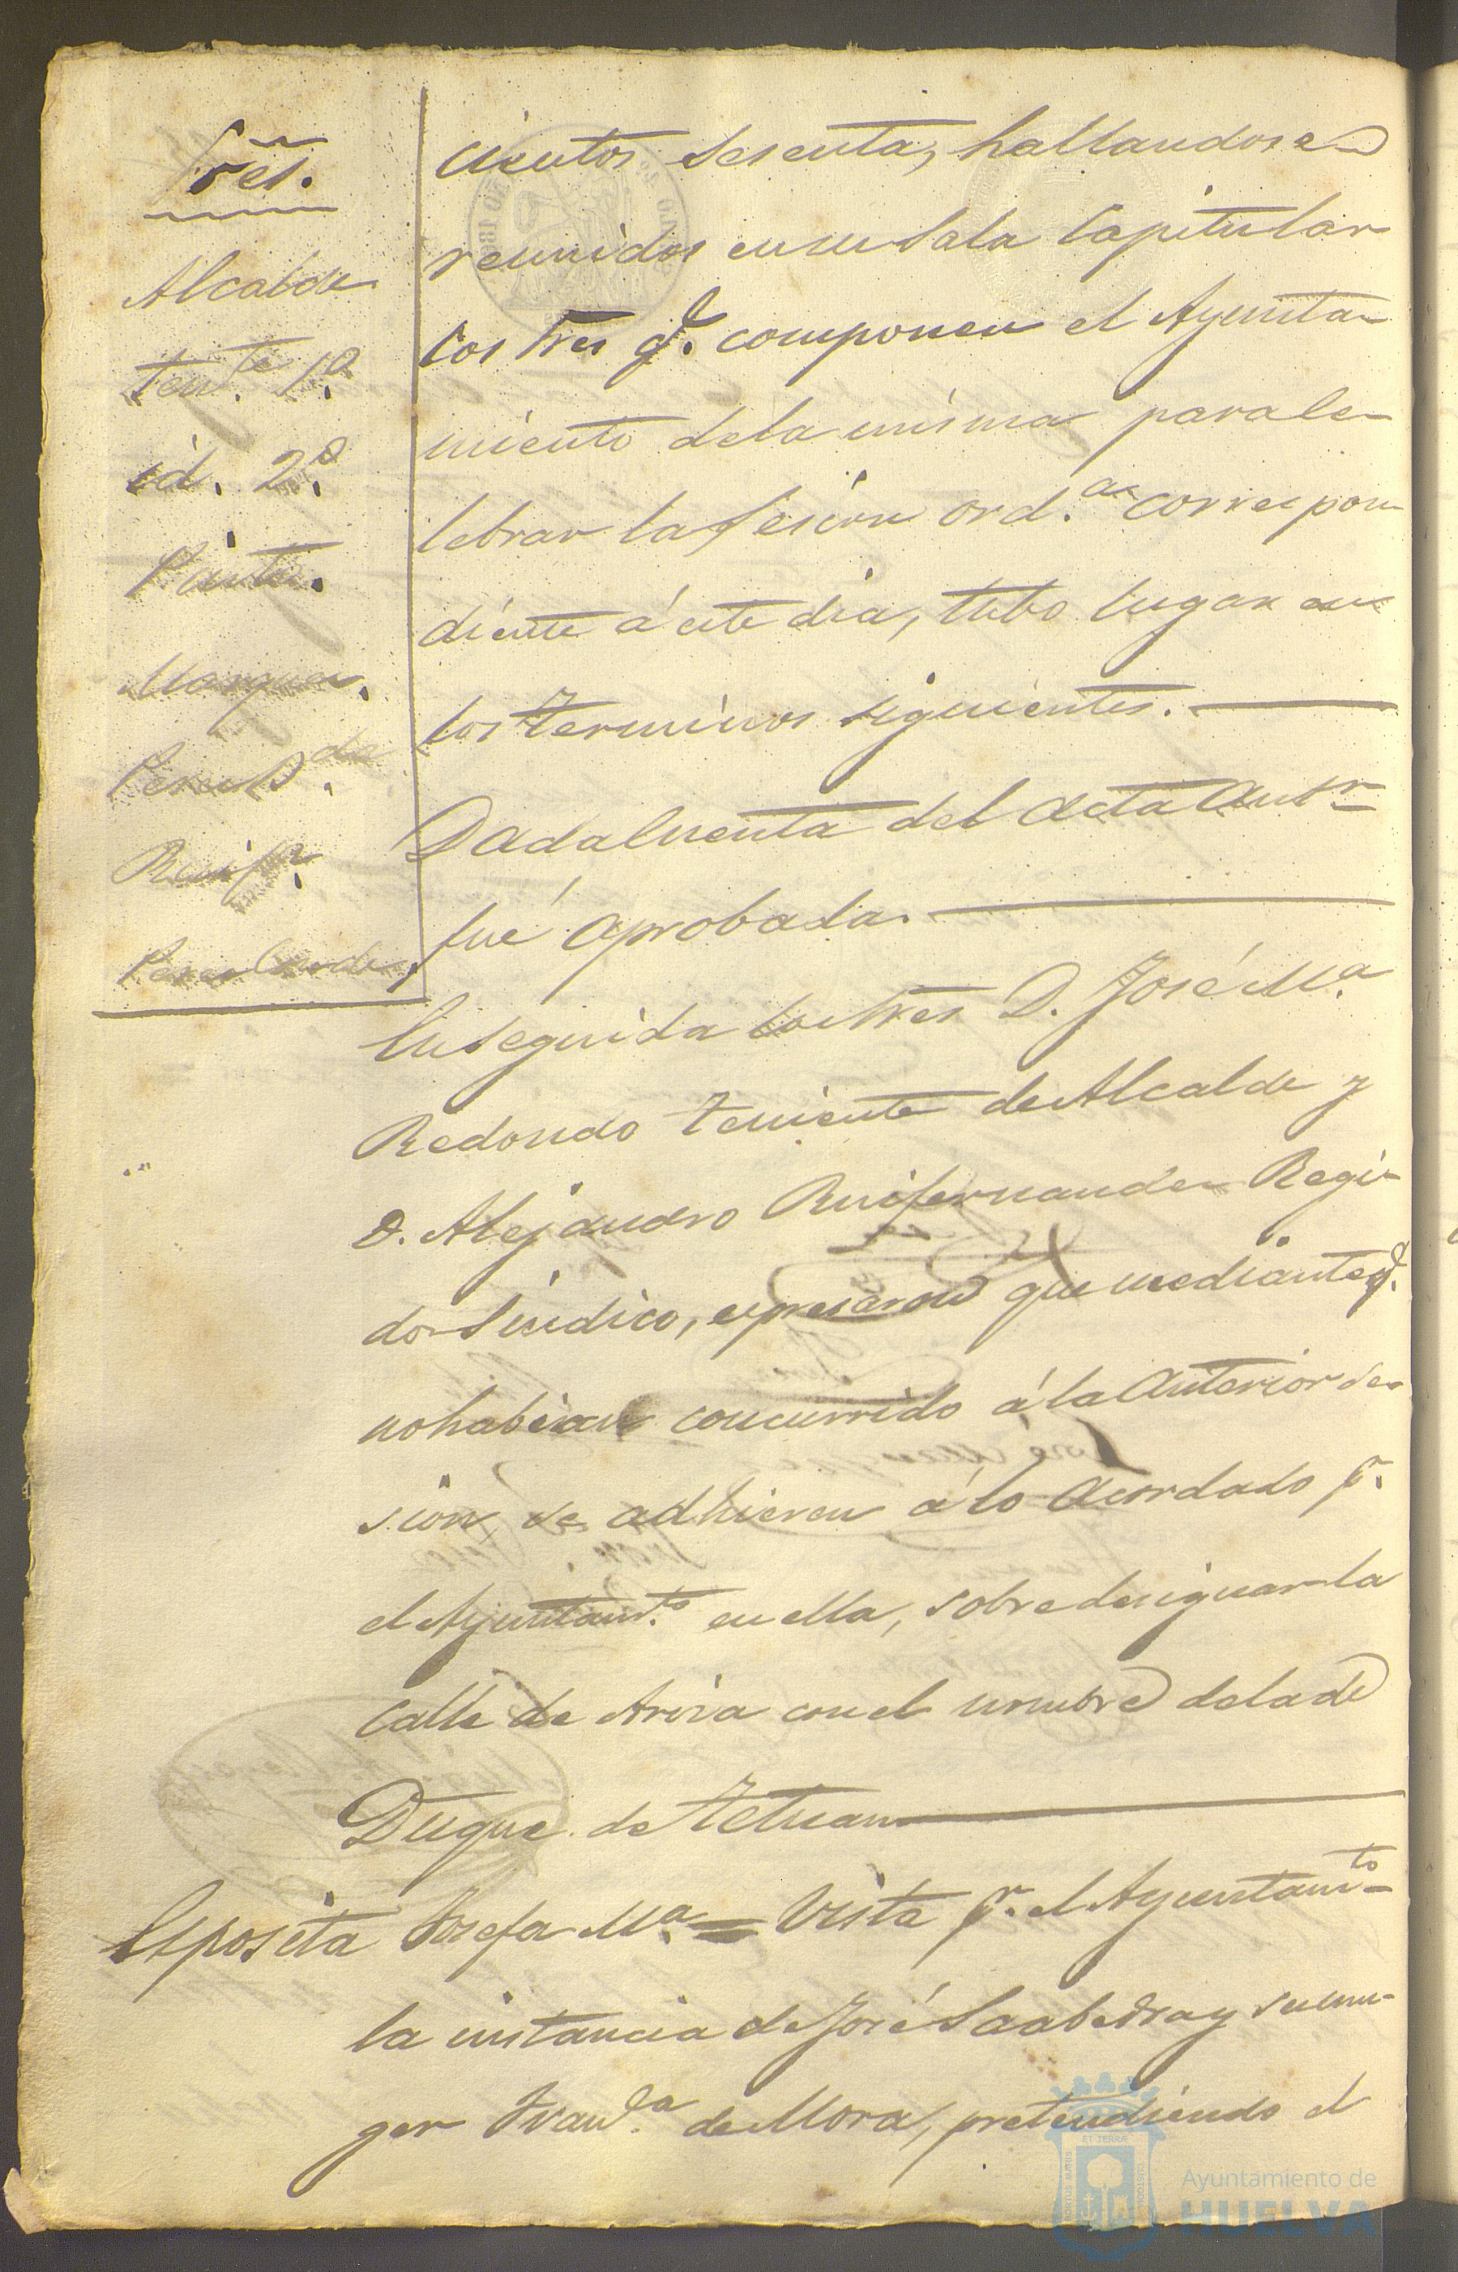 Sres.
Alcalde
tente. 1º.
id. 2º.
Marquez.
Ruifz.
cientos sesenta, hallandose
reunidos en su Sala Capitular
los Sres q.e componen el Ayunta-
miento dela misma para ce-
lebrar la Sesion ord.a correspon
diente á este dia, tubo lugar en
los terminos siguientes.
Dada Cuenta del acta antr
fué aprobada.
En seguida los Sres D. José M.a
Redondo Teniente de Alcalde y
D. Alejandro Ruifernandez Regi-
dor Sindico, expresaron que mediante q.e
no habian concurrido á la anterior se-
sion, se adhieren á lo acordado p.r
el Ayuntam.to en ella, sobre designar la
calle de Arriva con el nombre dela de
Duque de Tetuan
Exposita Josefa M.a = Vista p.r el Ayuntam.to
la instancia de José Saabedra y su mu-
ger Fran.ca de Mora, pretendiendo el
Ayuntamiento de
HUELVA